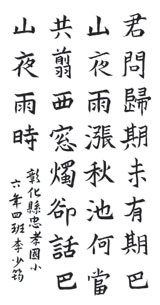 君問歸期未有期巴
山夜雨漲秋池何當
共翦西窓燭卻話巴
山夜雨時
彰化縣忠孝國小
六年四班李少筠